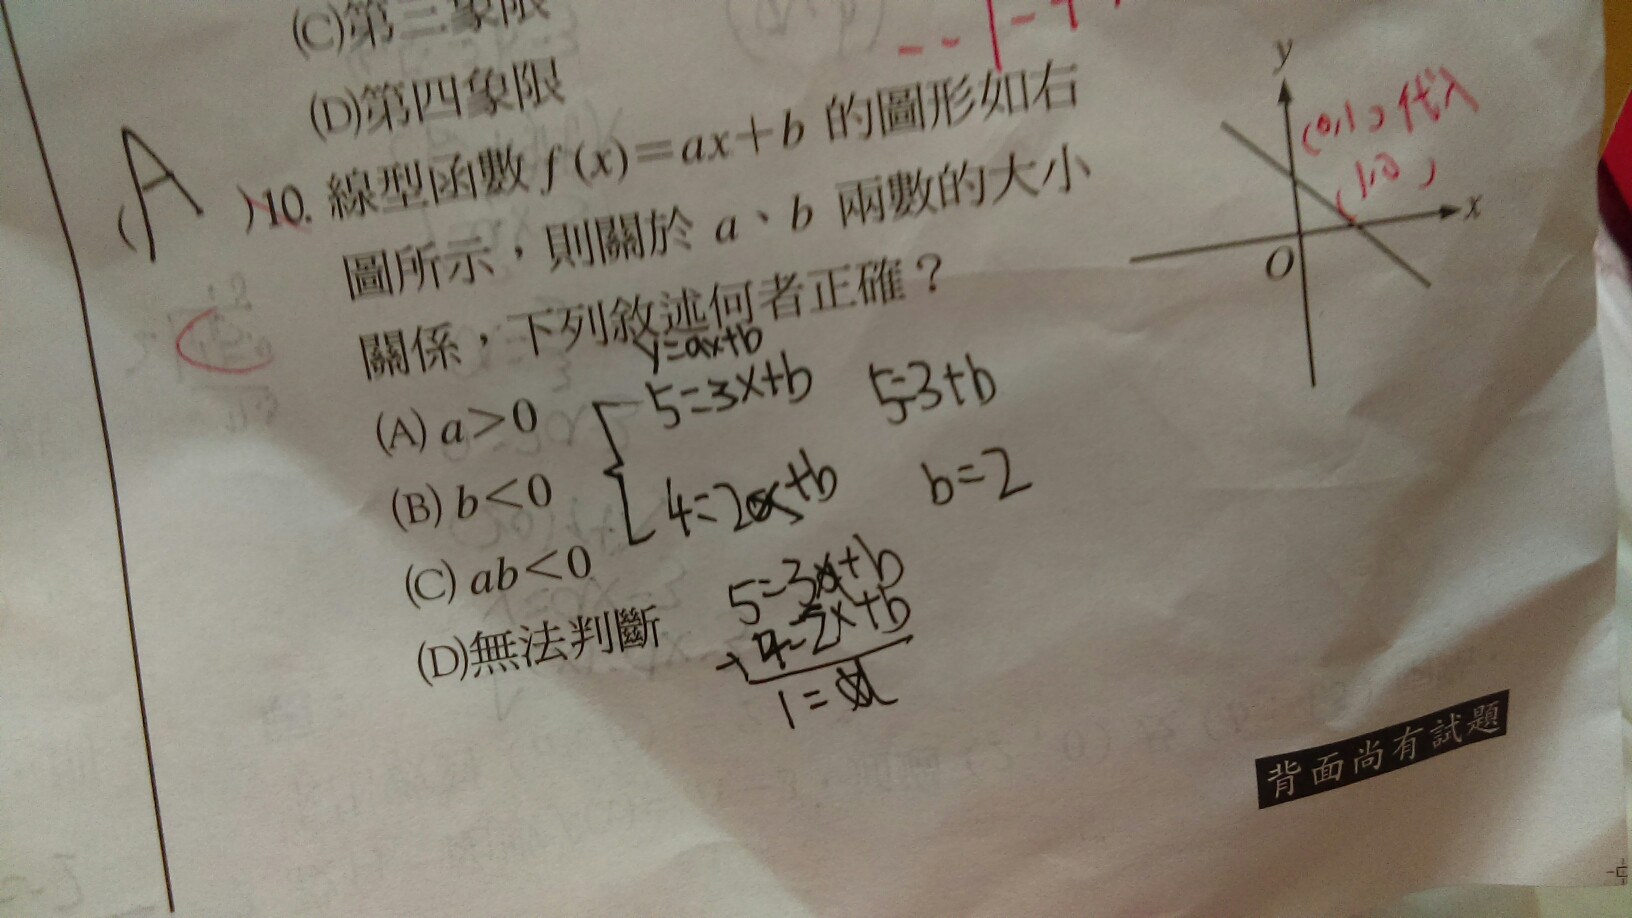 (C)第三象限
(D)第四象限
(A)10. 線型函數 f(x)=ax+b 的圖形如右
圖所示，則關於 a、b 兩數的大小
關係，下列敘述何者正確？
y=ax+b
(A) a>0
5=3x+b
5=3+b
(B) b<0
4=2x+b
b=2
(C) ab<0
5=3x+b
4=2x+b
1=
(D)無法判斷
y
(0,1)代入
(1,0)
x
O
背面尚有試題